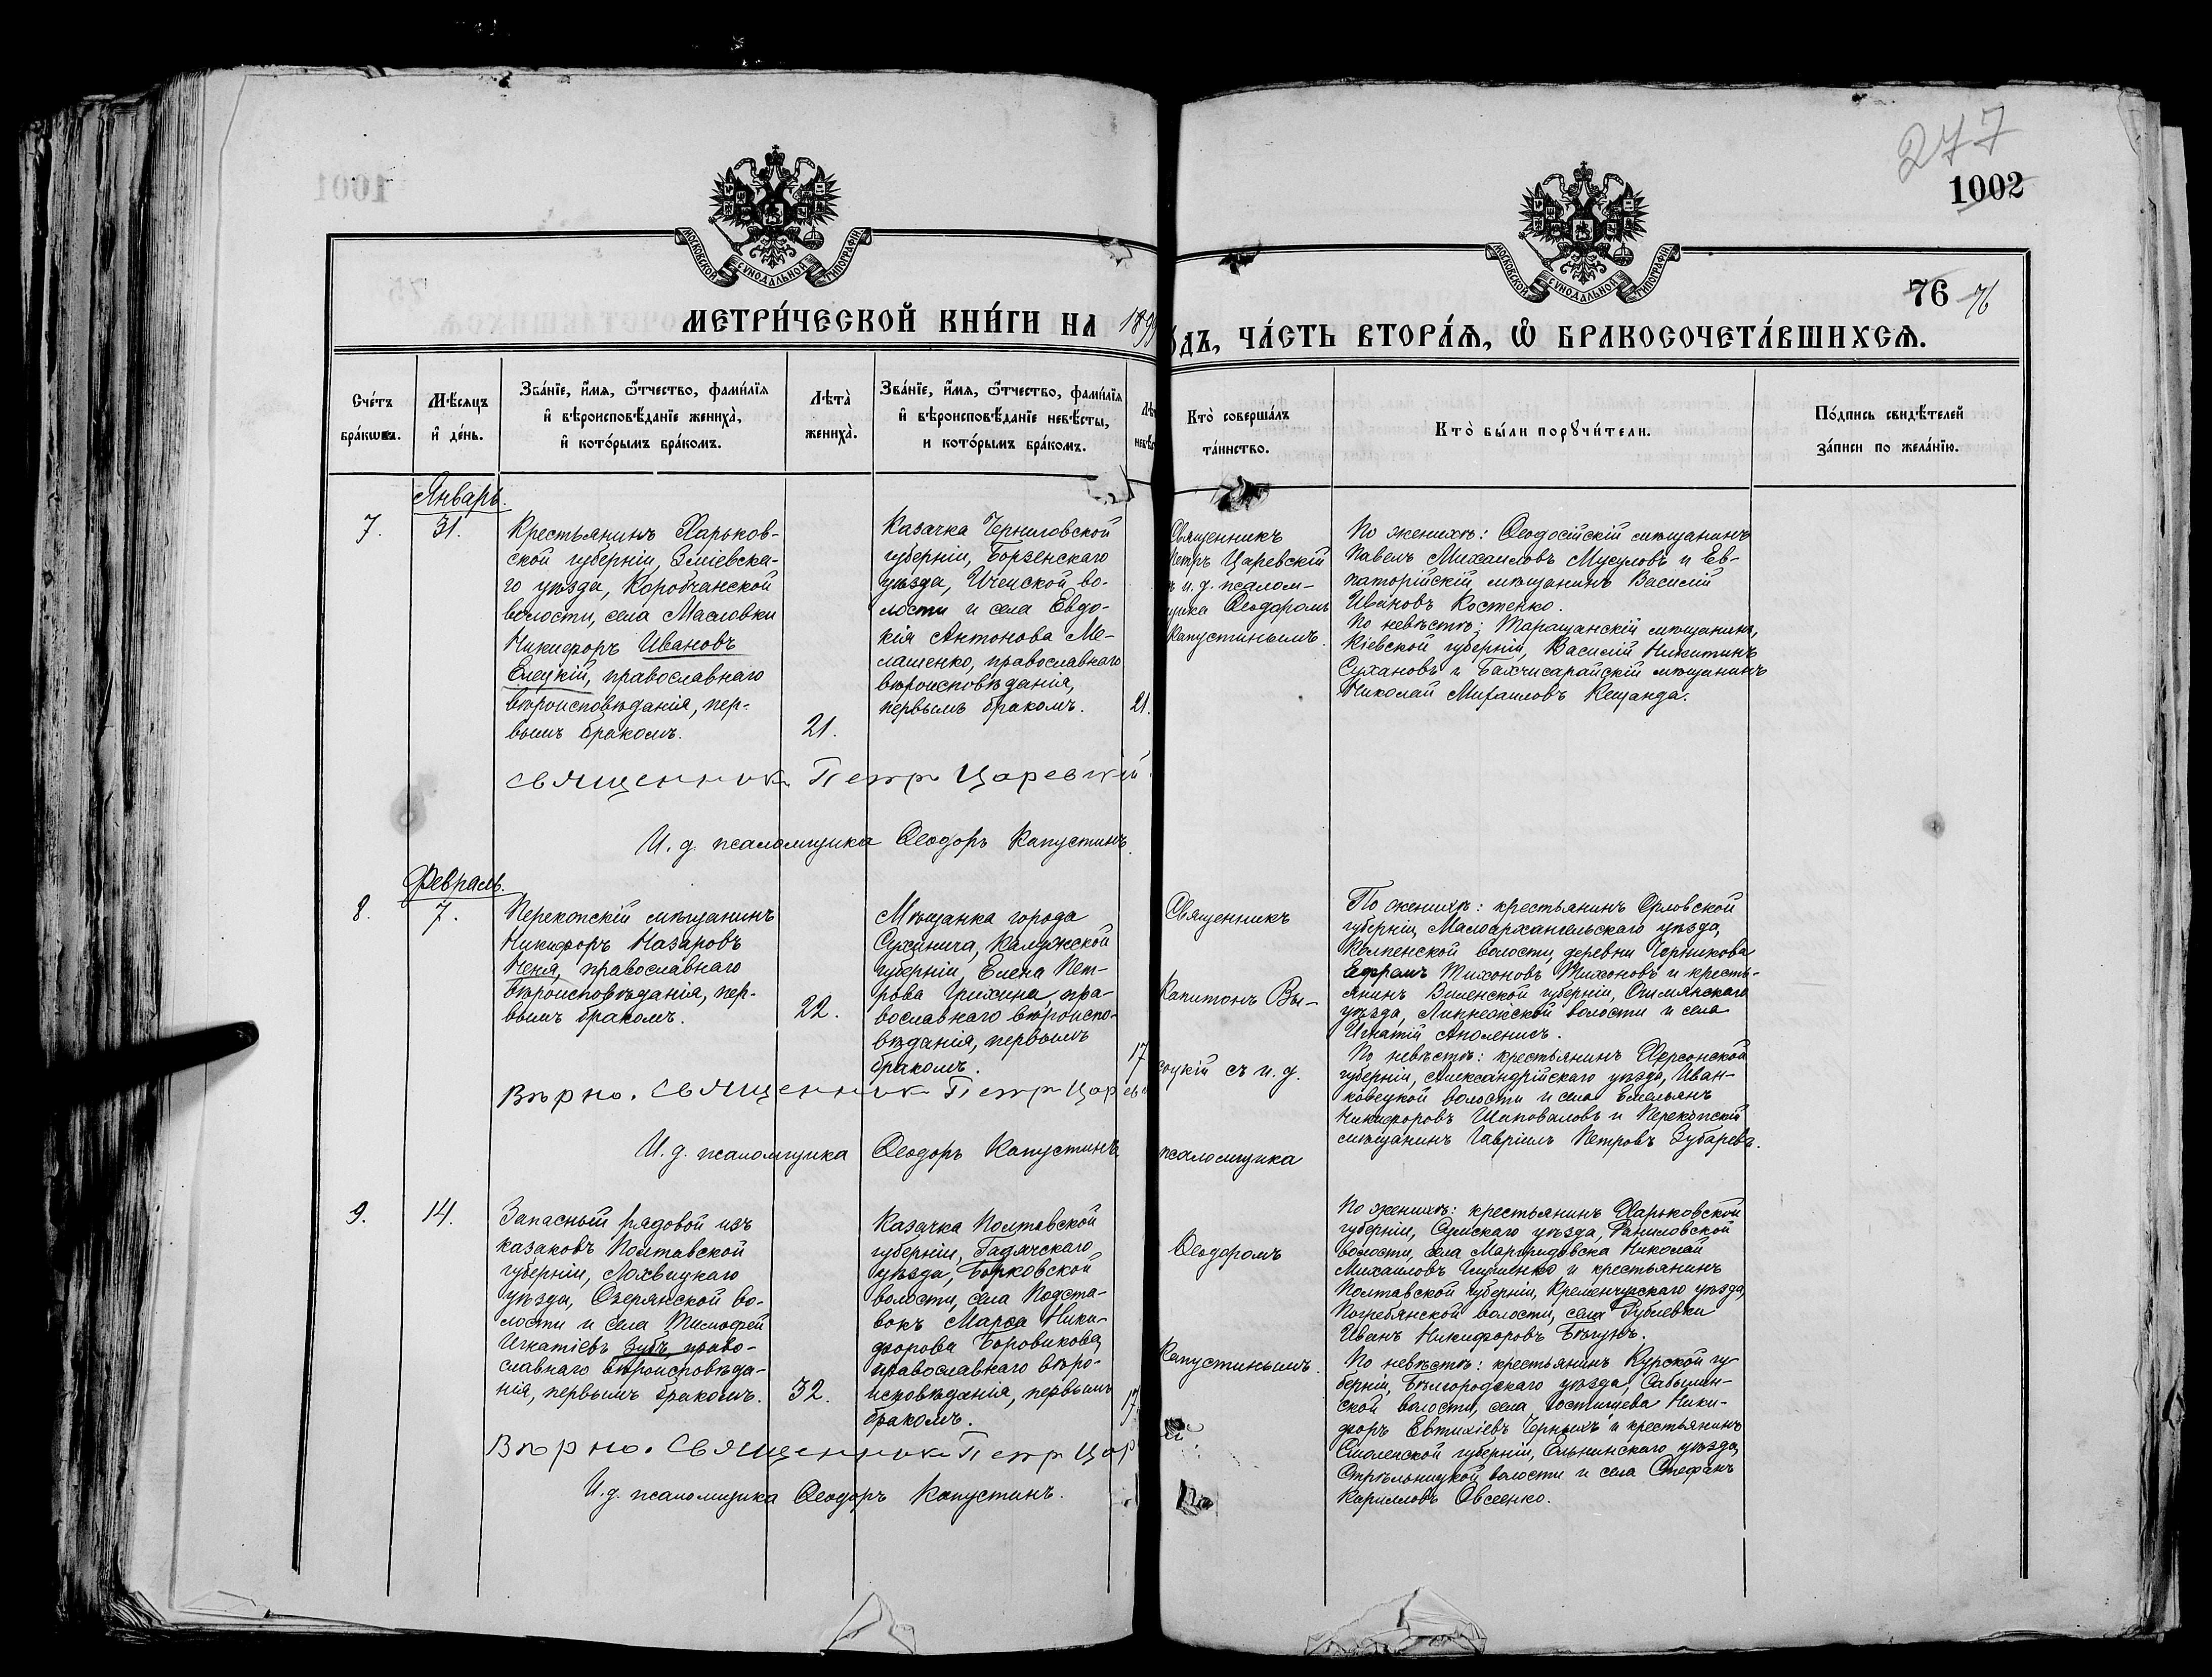 277
1002
76 76
МОСКОВСКОЙ СѴНОДАЛЬНОЙ ТИПОГРАФІИ
МОСКОВСКОЙ СѴНОДАЛЬНОЙ ТИПОГРАФІИ
МЕТРИ́ЧЕСКОЙ КНИ́ГИ НА 1899
ОДЪ, ЧА́СТЬ ВТОРА́Ѧ, Ѽ БРАКОСОЧЕТА́ВШИХСѦ.
Сче́тъ
бра́кѡвъ.
Мѣ́сяцъ
и҆ де́нь.
Зва́нїе, и҆́мѧ, ѻ҆́тчество, фами́лїѧ
и҆ вѣроисповѣ́данїе жениха̀,
и҆ кото́рымъ бра́комъ.
Лѣта̀
жениха̀.
Зва́нїе, и҆́мѧ, ѻ҆́тчество, фами́лїѧ
и҆ вѣроисповѣ́данїе невѣ́сты,
и кото́рымъ бра́комъ.
Лѣ
невѣс
Кто̀ соверша́лъ
та́инство.
Кто̀ бы́ли порꙋчи́тели.
По́дпись свидѣ́телей
за́писи по жела́нїю.
Январь.
7.
31.
Крестьянинъ Харьков-
ской губерніи, Зміевска-
го уѣзда, Коробчанской
волости, села Масловки
Никифоръ Ивановъ
Елецкій, православнаго
вѣроисповѣданія, пер-
вымъ бракомъ.
21.
Казачка Черниговской
губерніи, Борзенскаго
уѣзда, Иченской во-
лости и села Евдо-
кія Антонова Ме-
лашенко, православнаго
вѣроисповѣданія,
первымъ бракомъ.
21.
Священникъ
Петръ Царевскій
ъ и. д. псалом-
щика Ѳеодоромъ
Капустинымъ.
По женихѣ: Ѳеодосійскій мѣщанинъ
Павелъ Михаиловъ Мусуловъ и Ев-
паторійскій мѣщанинъ Василій
Ивановъ Костенко.
По невѣстѣ: Таращанскій мѣщанинъ,
Кіевской губерніи, Василій Никитинъ
Сухановъ и Бахчисарайскій мѣщанинъ
Николай Михаиловъ Кещанда.
Священникъ Петръ Царевскій.
И. д. псаломщика Ѳеодоръ Капустинъ.
Февраль.
8.
7.
Перекопскій мѣщанинъ
Никифоръ Назаровъ
Ченя, православнаго
вѣроисповѣданія, пер-
вымъ бракомъ.
22.
Мѣщанка города
Сухинича, Калужской
губерніи, Елена Пет-
рова Грихина, пра-
вославнаго вѣроиспо-
вѣданія, первымъ
бракомъ.
17
Священникъ
Капитонъ Вы-
соцкій съ и. д.
псаломщика
Ѳеодоромъ
Капустинымъ.
По женихѣ: крестьянинъ Орловской
губерніи, Малоархангельскаго уѣзда,
Колпенской волости, деревни Черникова
Ефремъ Тихоновъ Тихоновъ и кресть-
янинъ Виленской губерніи, Ошмянскаго
уѣзда, волости и села
Игнатій
По невѣстѣ: крестьянинъ Херсонской
губерніи, Александрійскаго уѣзда, Иван-
ковецкой волости и села Емельянъ
Никифоровъ Шаповаловъ и Перекопскій
мѣщанинъ Гавріилъ Петровъ Зубаревъ.
Вѣрно. Священникъ Петръ Царев
И. д. псаломщика Ѳеодоръ Капустинъ
9.
14.
Запасный рядовой изъ
казаковъ Полтавской
губерніи, Лохвицкаго
уѣзда, Озерянской во-
лости и села Тимофей
Игнатіевъ Зубъ, право-
славнаго вѣроисповѣда-
нія, первымъ бракомъ.
32.
Казачка Полтавской
губерніи, Гадячскаго
уѣзда, Борковской
волости, села Подста-
вокъ Марѳа Ники-
форова Боровикова,
православнаго вѣро-
исповѣданія, первымъ
бракомъ.
17.
По женихѣ: крестьянинъ Харьковской
губерніи, Сумскаго уѣзда,
волости, села Николай
Михаиловъ и крестьянинъ
Полтавской губерніи, Кременчугскаго уѣзда,
Погребянской волости, села Рублевки
Иванъ Никифоровъ Бѣгунъ.
По невѣстѣ: крестьянинъ Курской гу-
берніи, Бѣлгородскаго уѣзда, Сабынин-
ской волости, села Гостищева Ники-
форъ Евтихіевъ Черныхъ и крестьянинъ
Смоленской губерніи, Ельнинскаго уѣзда,
волости и села Стефанъ
Карилловъ Овсеенко.
Вѣрно. Священникъ Петръ Цар
И. д. псаломщика Ѳеодоръ Капустинъ.